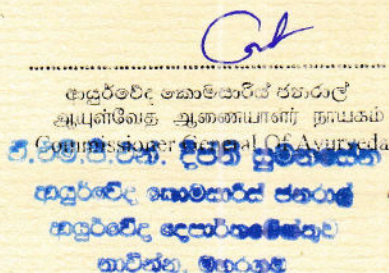 ආයුර්වේද කොමසාරිස් ජනරාල්
ஆயுள்வேத ஆணையாளர் நாயகம்
Commissioner General Of Ayurveda
ඒ.එම්.ජී.එන්. දීප්ති සුමනසේන
ආයුර්වේද කොමසාරිස් ජනරාල්
ආයුර්වේද දෙපාර්තමේන්තුව
නාවින්න, මහරගම